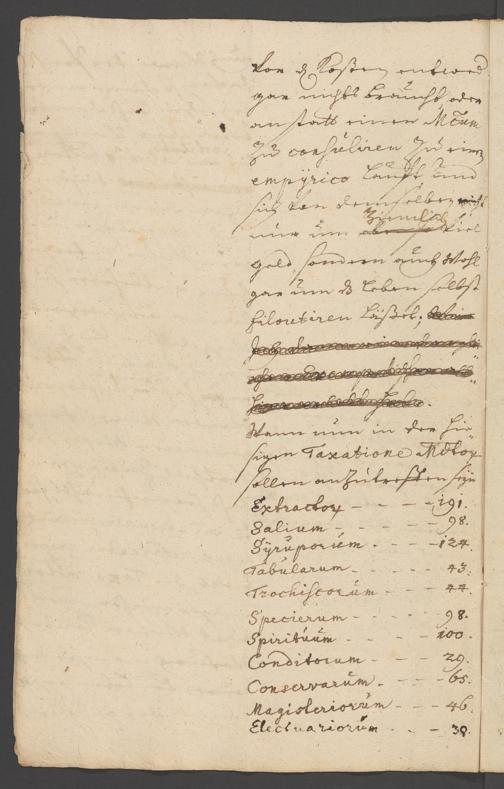 von d Kosten entwed
gar nichts braucht, oder
anstatt einen Mcum
zu consuliren zu einem
empyrico laufft und
sich von demselben nicht
nur um ziemlich viel
geld sondern auch wohl
gar um d leben selbst
filoutiren läßet;
Wann nun in der hie
sigen Taxatione Mdtor
sollen anzutreffen seyn
Extractor - - - 191.
Salium - - - - 98.
Syruporum - - - 124.
Tabularum - - - 43.
Trochiscorum - - - 44.
Specierum - - - 98.
Spirituum - - - 100.
Conditorum - - - 29.
Conservarum - - - 65.
Magisteriorum - - - 46.
Electuariorum - - 30.